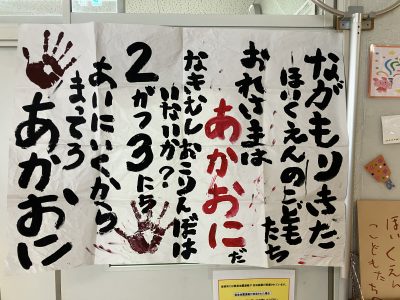 ながもりきた
ほいくえんのこどもたち
おれさまは
あかおにだ
なきむしおこりんぼは
いないか?
2がつ3にち
あいにいくから
まってろ
あかおに
ほいくえん
こどもたち